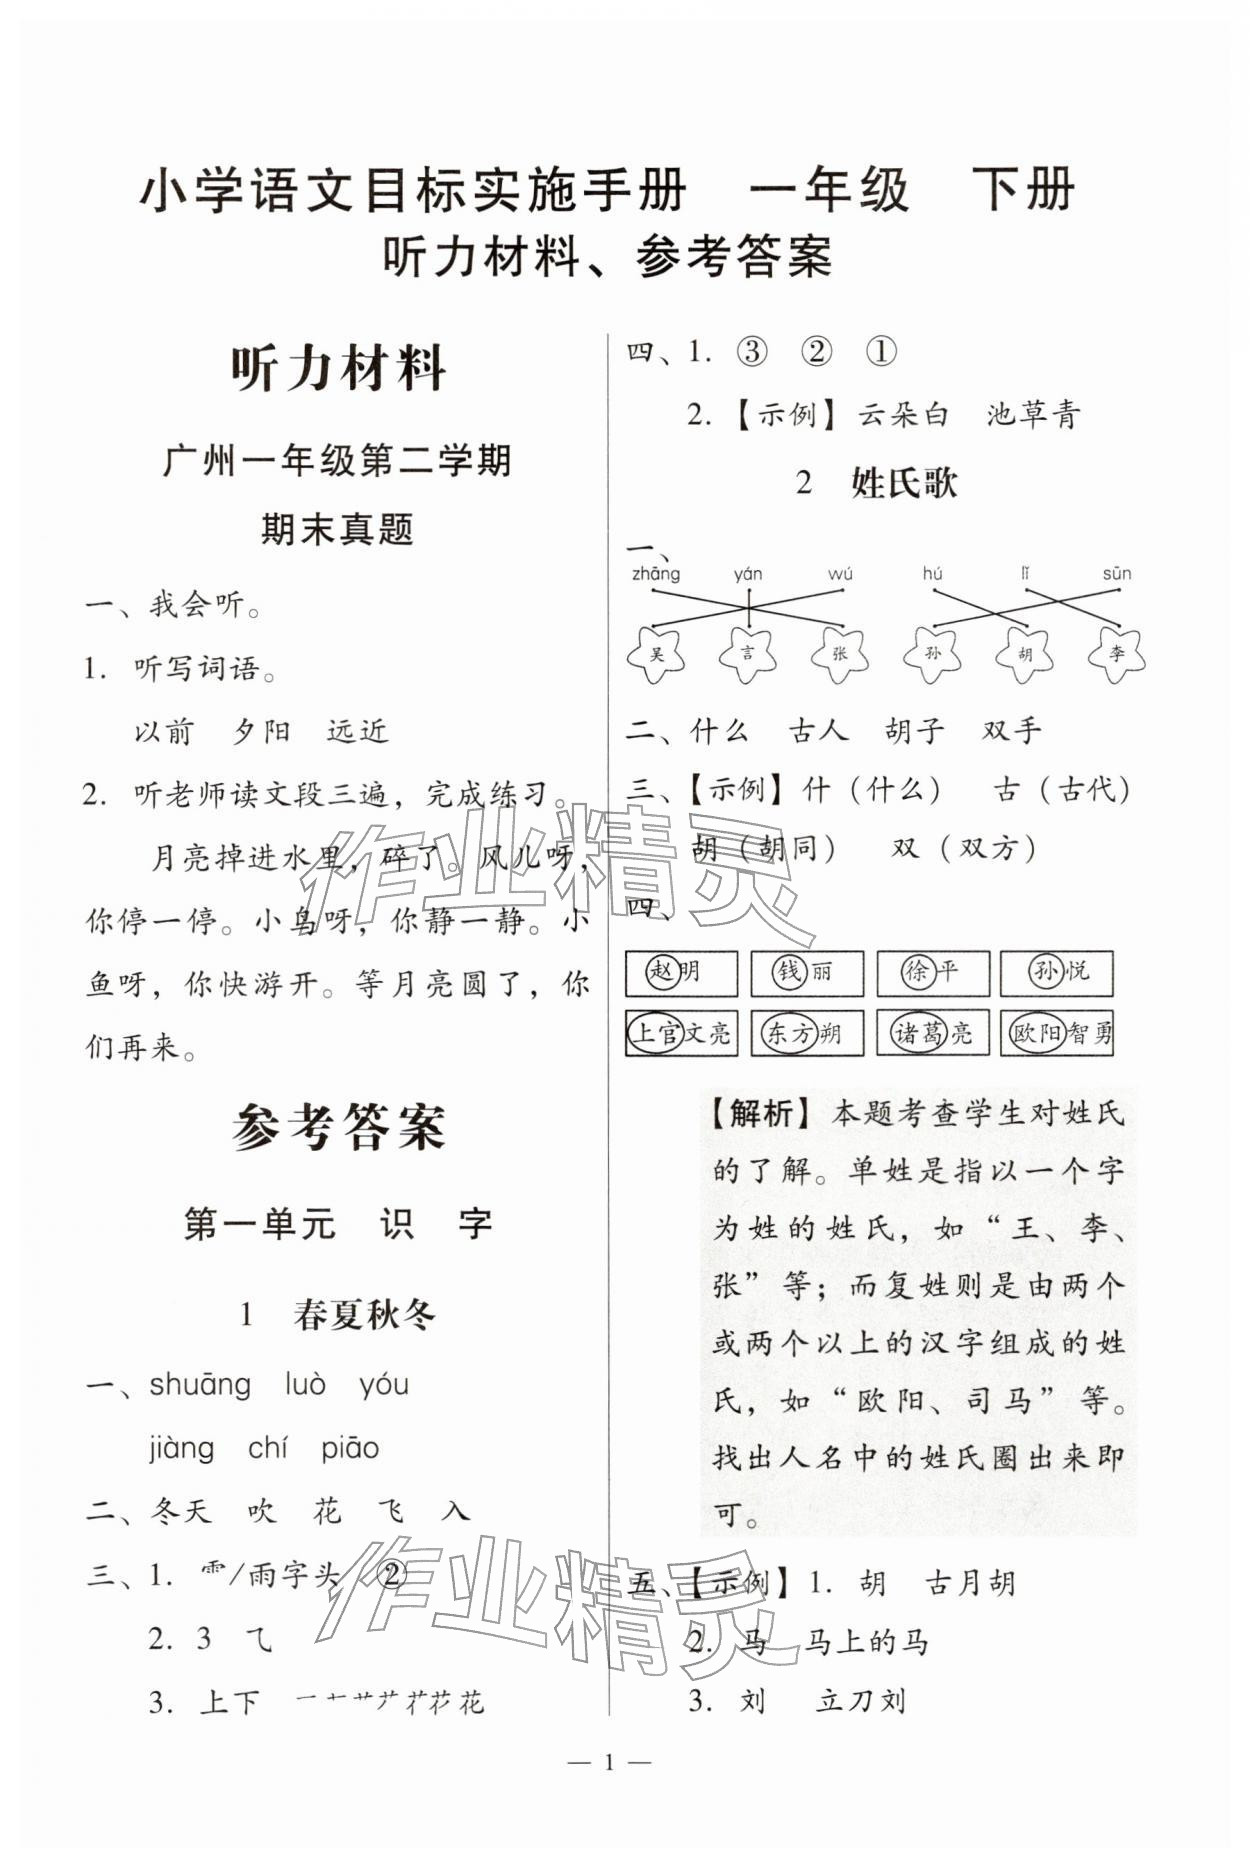 小学语文目标实施手册 一年级 下册
听力材料、参考答案
听力材料
广州一年级第二学期
期末真题
一、我会听。
1. 听写词语。
以前 夕阳 远近
2. 听老师读文段三遍，完成练习。
月亮掉进水里，碎了。风儿呀，
你停一停。小鸟呀，你静一静。小
鱼呀，你快游开。等月亮圆了，你
们再来。
参考答案
第一单元 识 字
1 春夏秋冬
一、shuāng luò yóu
jiàng chí piāo
二、冬天 吹 花 飞 入
三、1. ⻗/雨字头 ②
2. 3 ⺄
3. 上下 花
四、1. ③ ② ①
2.【示例】云朵白 池草青
2 姓氏歌
一、
zhāng yán wú hú lǐ sūn
吴 言 张 孙 胡 李
二、什么 古人 胡子 双手
三、【示例】什（什么） 古（古代）
胡（胡同） 双（双方）
四、
赵明 钱丽 徐平 孙悦
上官文亮 东方朔 诸葛亮 欧阳智勇
【解析】本题考查学生对姓氏
的了解。单姓是指以一个字
为姓的姓氏，如“王、李、
张”等；而复姓则是由两个
或两个以上的汉字组成的姓
氏，如“欧阳、司马”等。
找出人名中的姓氏圈出来即
可。
五、【示例】1. 胡 古月胡
2. 马 马上的马
3. 刘 立刀刘
— 1 —
作业精灵
作业精灵